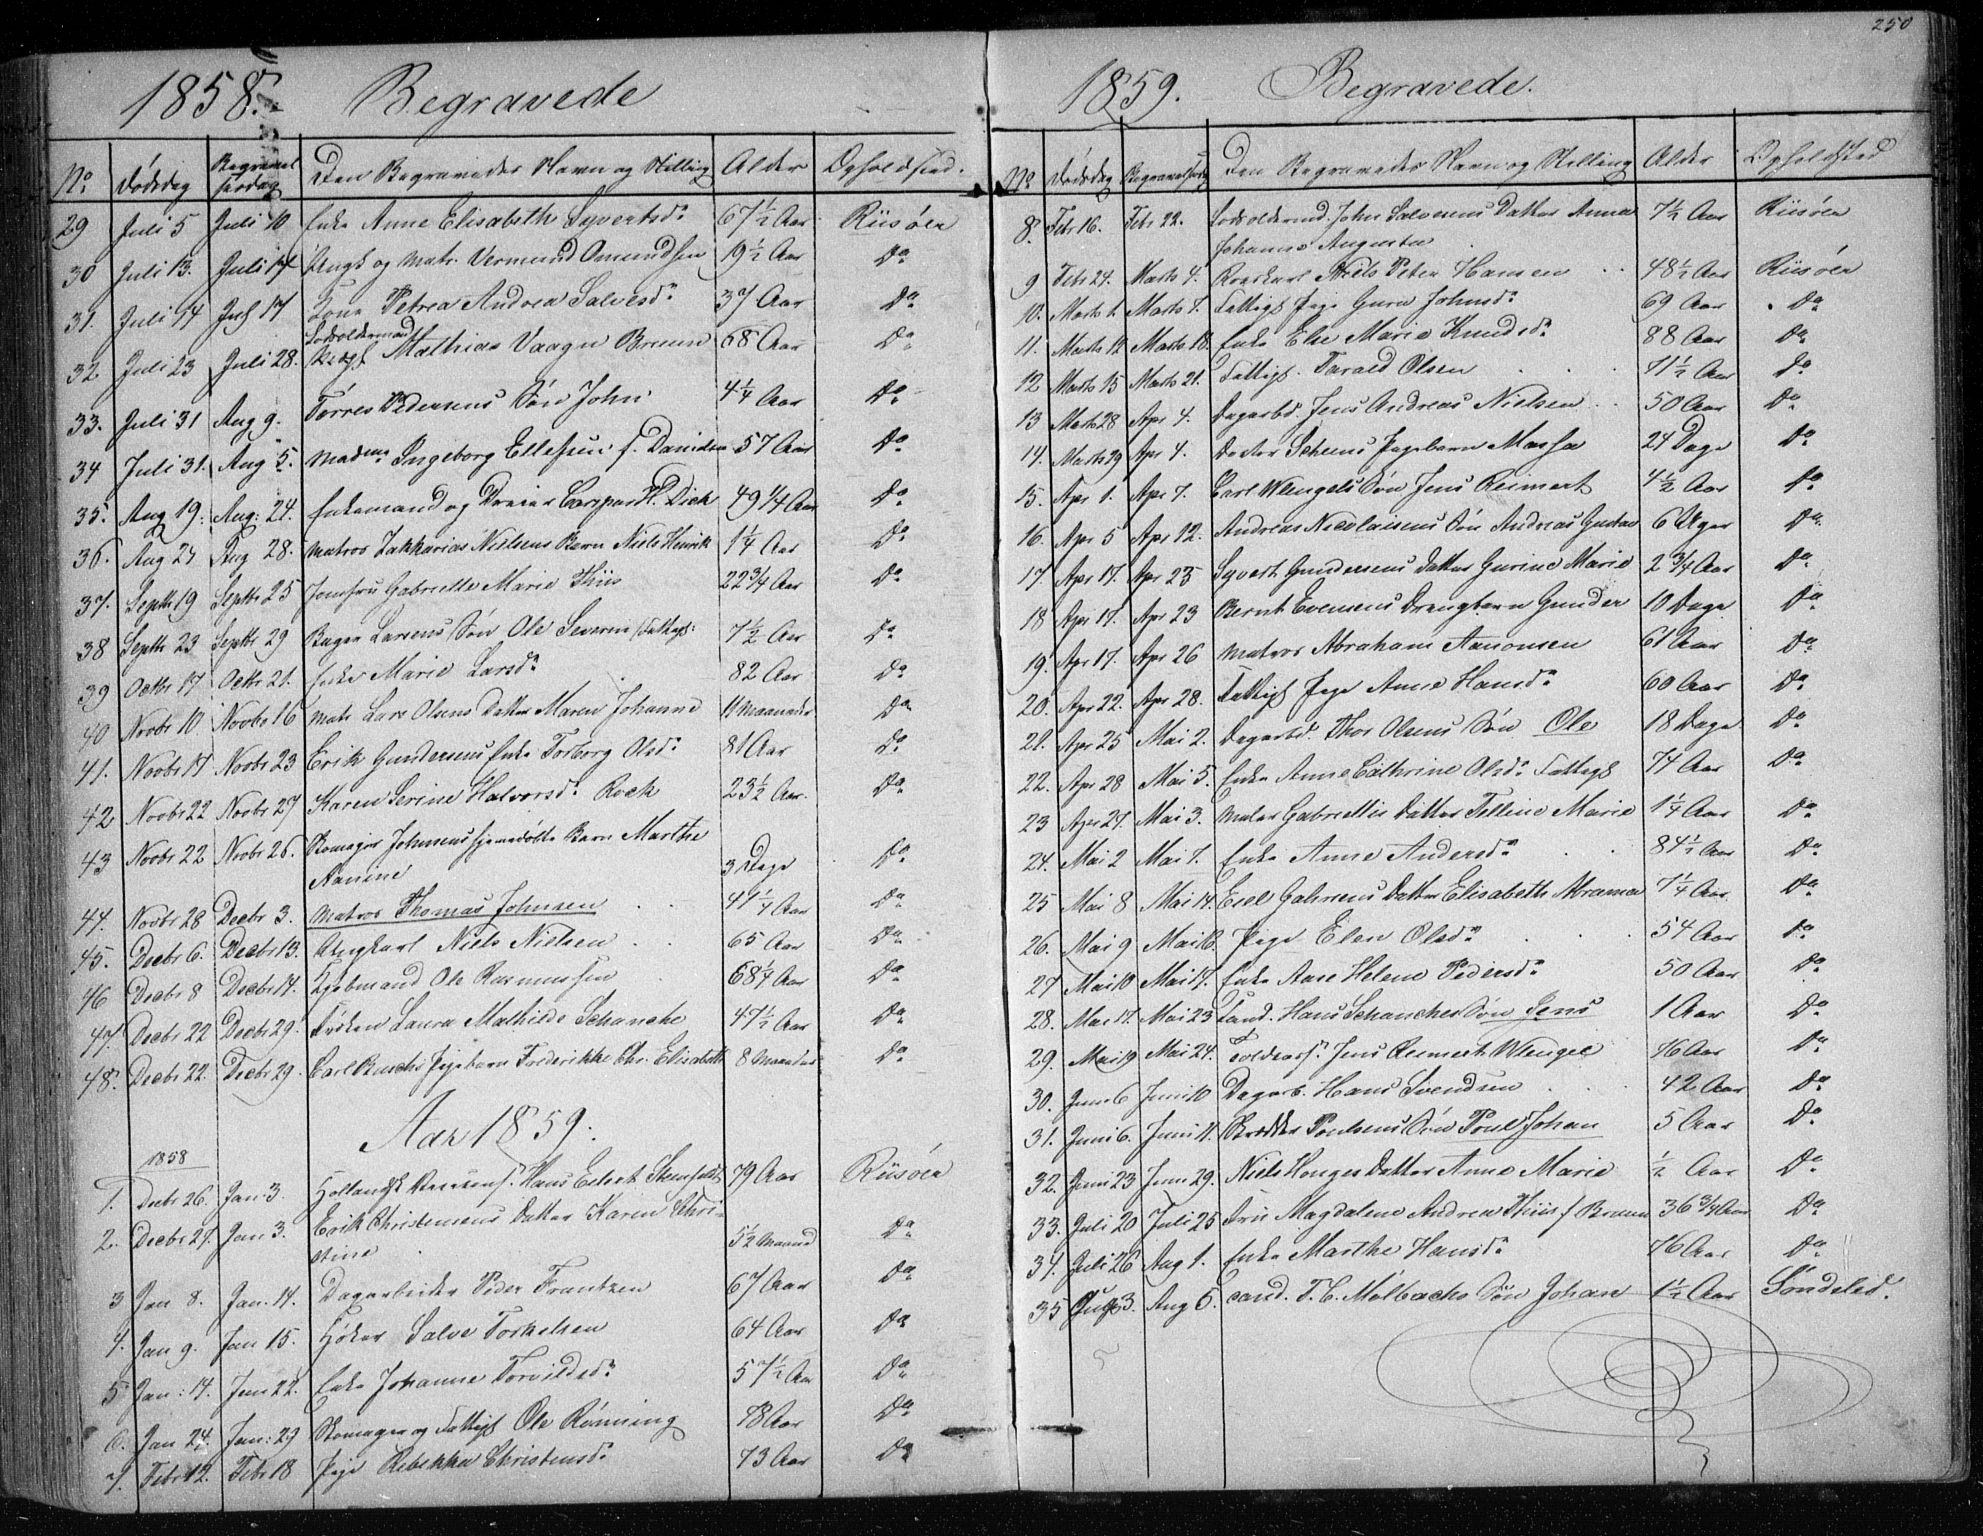 250
1858. Begravede
No Dødsdag Begravelsesdag Den Begravedes Navn og Stilling Alder Opholdsted.
29 Juli 5 Juli 10 Enke Anne Elisabeth Syvertsd. 67½ Aar Riisøer
30 Juli 13. Juli 17 Ungk og Matr. Vermund Omundsen 19½ Aar Do
31. Juli 14 Juli 17 Kone Petrea Andrea Salvesd. 37 Aar Do
32 Juli 23 Juli 28. Mathias Vaagn Bruun 68 Aar Do
33. Juli 31 Aug 9. Torres Pedersens Søn John 4¼ Aar Do
34 Juli 31. Aug 5. Madme Ingeborg Ellefsen f. Davidsen 57 Aar Do
35. Aug 19. Aug: 24. Enkemand og Dreier Casper H. Dick 49 1/4 Aar Do
36. Aug 24 Aug 28. Matros Zakkarias Nielsens Barn Niels Henrik 1¼ Aar Do
37. Septbr 19 Septbr 25 Jomfru Gabrielle Marie Thiis 22¾ Aar Do
38 Septbr 23 Septbr 29 Bager Larsens Søn Ole Severin 7½ Aar Do
39 Octbr 17 Octbr 21. Enke Marie Larsd. 82 Aar Do
40 Novbr 10. Novbr 16 Matr Lars Olsens Datter Maren Johanne 11 Maaneder Do
41. Novbr 17 Novbr 23 Erik Gundersens Enke Torborg Olsd. 81 Aar Do
42 Novbr 22 Novbr 27 Karen Serine Halvorsd. Roch 23½ Aar. Do
43 Novbr 22 Novbr 26. Skomager Johnsens hjemmedøbte Barn Marthe
Aanine 3 Dage Do
44. Novbr 28 Decbr 3. Matros Thomas Johnsen 41¼ Aar Do
45. Decbr 6. Decbr 13. Ungkarl Niels Nielsen 65 Aar Do
46 Decbr 8 Decbr 14. Ole Rasmussen 68¼ Aar Do
47. Decbr 22 Decbr 29. Frøken Laura Mathilde Schanche 47½ Aar Do
48. Decbr 22. Decbr 29. Carl Buschs Pigebarn Frederikke Chr. Elisabeth 8 Maaneder Do
Aar 1859.
1858
1. Decbr 26. Jan. 3. Hans Eilert 79 Aar Riisøer
2. Decbr 27. Jan 3. Erik Christensens Datter Karen Chri-
stine 5½ Maaned Do
3 Jan 8. Jan. 14. Dagarbeider Peder Frantzen 67 Aar Do
4. Jan 9. Jan 15. Høker Salve Torkelsen 64 Aar Do
5 Jan: 14. Jan 22. Enke Johanne Torvildsd. 57½ Aar Do
6. Jan 24. Jan: 29 Skomager og Fattigl Ole Rønning 78 Aar Do
7. Febr 12. Febr 18 Pige Rebekka Christensd. 73 Aar Do
1859. Begravede.
No Dødsdag Begravelsesdag Den Begravedes Navn og Stilling Alder Opholdsted
8. Febr 16. Febr 22. John Salvesens Datter Anna
Johanne Augusta 7½ Aar Riisøer
9 Febr 24. Marts 4. Niels Peter Hansen 48½ Aar Riisøer
10. Marts 1. Marts 7. Fattigl Pige Guro Johnsd. 69 Aar Do
11. Marts 12 Marts 18. Enke Else Marie Knudsd. 88 Aar Do
12 Marts 15 Marts 21. Fattigl. Tarald Olsen 71½ Aar Do
13 Marts 28 Apr 4. Dagarbd. Jens Andreas Nielsen 50 Aar Do
14. Marts 29 Apr 4. Doctor Scheens Pigebarn 24 Dage Do
15. Apr 1. Apr 7. Carl Wengels Søn Jens Reimert 4½ Aar Do
16. Apr 5 Apr 12. Andreas Nicolaisens Søn Andreas Gustav 6 Uger Do
17 Apr 17. Apr 23 Syvert Gundersens Datter Gurine Marie 2¾ Aar Do
18 Apr 17. Apr 23 Bernt Evensens Drengbarn Gunder 10 Dage Do
19. Apr 17. Apr 26 Matros Abraham Aanonsen 61 Aar Do
20. Apr 22. Apr 28. Fattigl Pige Anne Hansd. 60 Aar Do
21. Apr 25 Mai 2. Dagarbd. Thor Olsens Søn Ole 18 Dage Do
22. Apr 28 Mai 5. Enke Anne Cathrine Olsd. Fattigl 74 Aar Do
23 Apr 27. Mai 3. Datter Telline Marie 1¼ Aar Do
24. Mai 2 Mai 7. Enke Anne Andersd. 84½ Aar Do
25 Mai 8 Mai 14. Datter Elisabeth 7¼ Aar Do
26. Mai 9 Mai 16. Pige Elen Olsd. 54 Aar Do
27 Mai 10 Mai 17. Enke Ane Helene Pedersd. 50 Aar Do
28. Mai 17. Mai 23 Cand. Hans Schanches Søn Jens 1 Aar Do
29. Mai 19 Mai 24. Jens Reimert Wengel 76 Aar Do
30. Juni 6 Juni 10 Dagarb. Hans Svendsen 42 Aar Do
31. Juni 6. Juni 11. Skrædder Poulsens Søn Poul Johan 5 Aar Do
32. Juni 23 Juni 29. Niels Datter Anne Marie ½ Aar Do
33. Juli 20 Juli 25 Fru Magdalene Andrea Thiis f Bruun 36¾ Aar Do
34. Juli 26 Aug 1. Enke Marthe Hansd. 76 Aar Do
35 Aug 3. Aug 6. cand. T. C. Mølbachs Søn Johan 1½ Aar Søndeled.